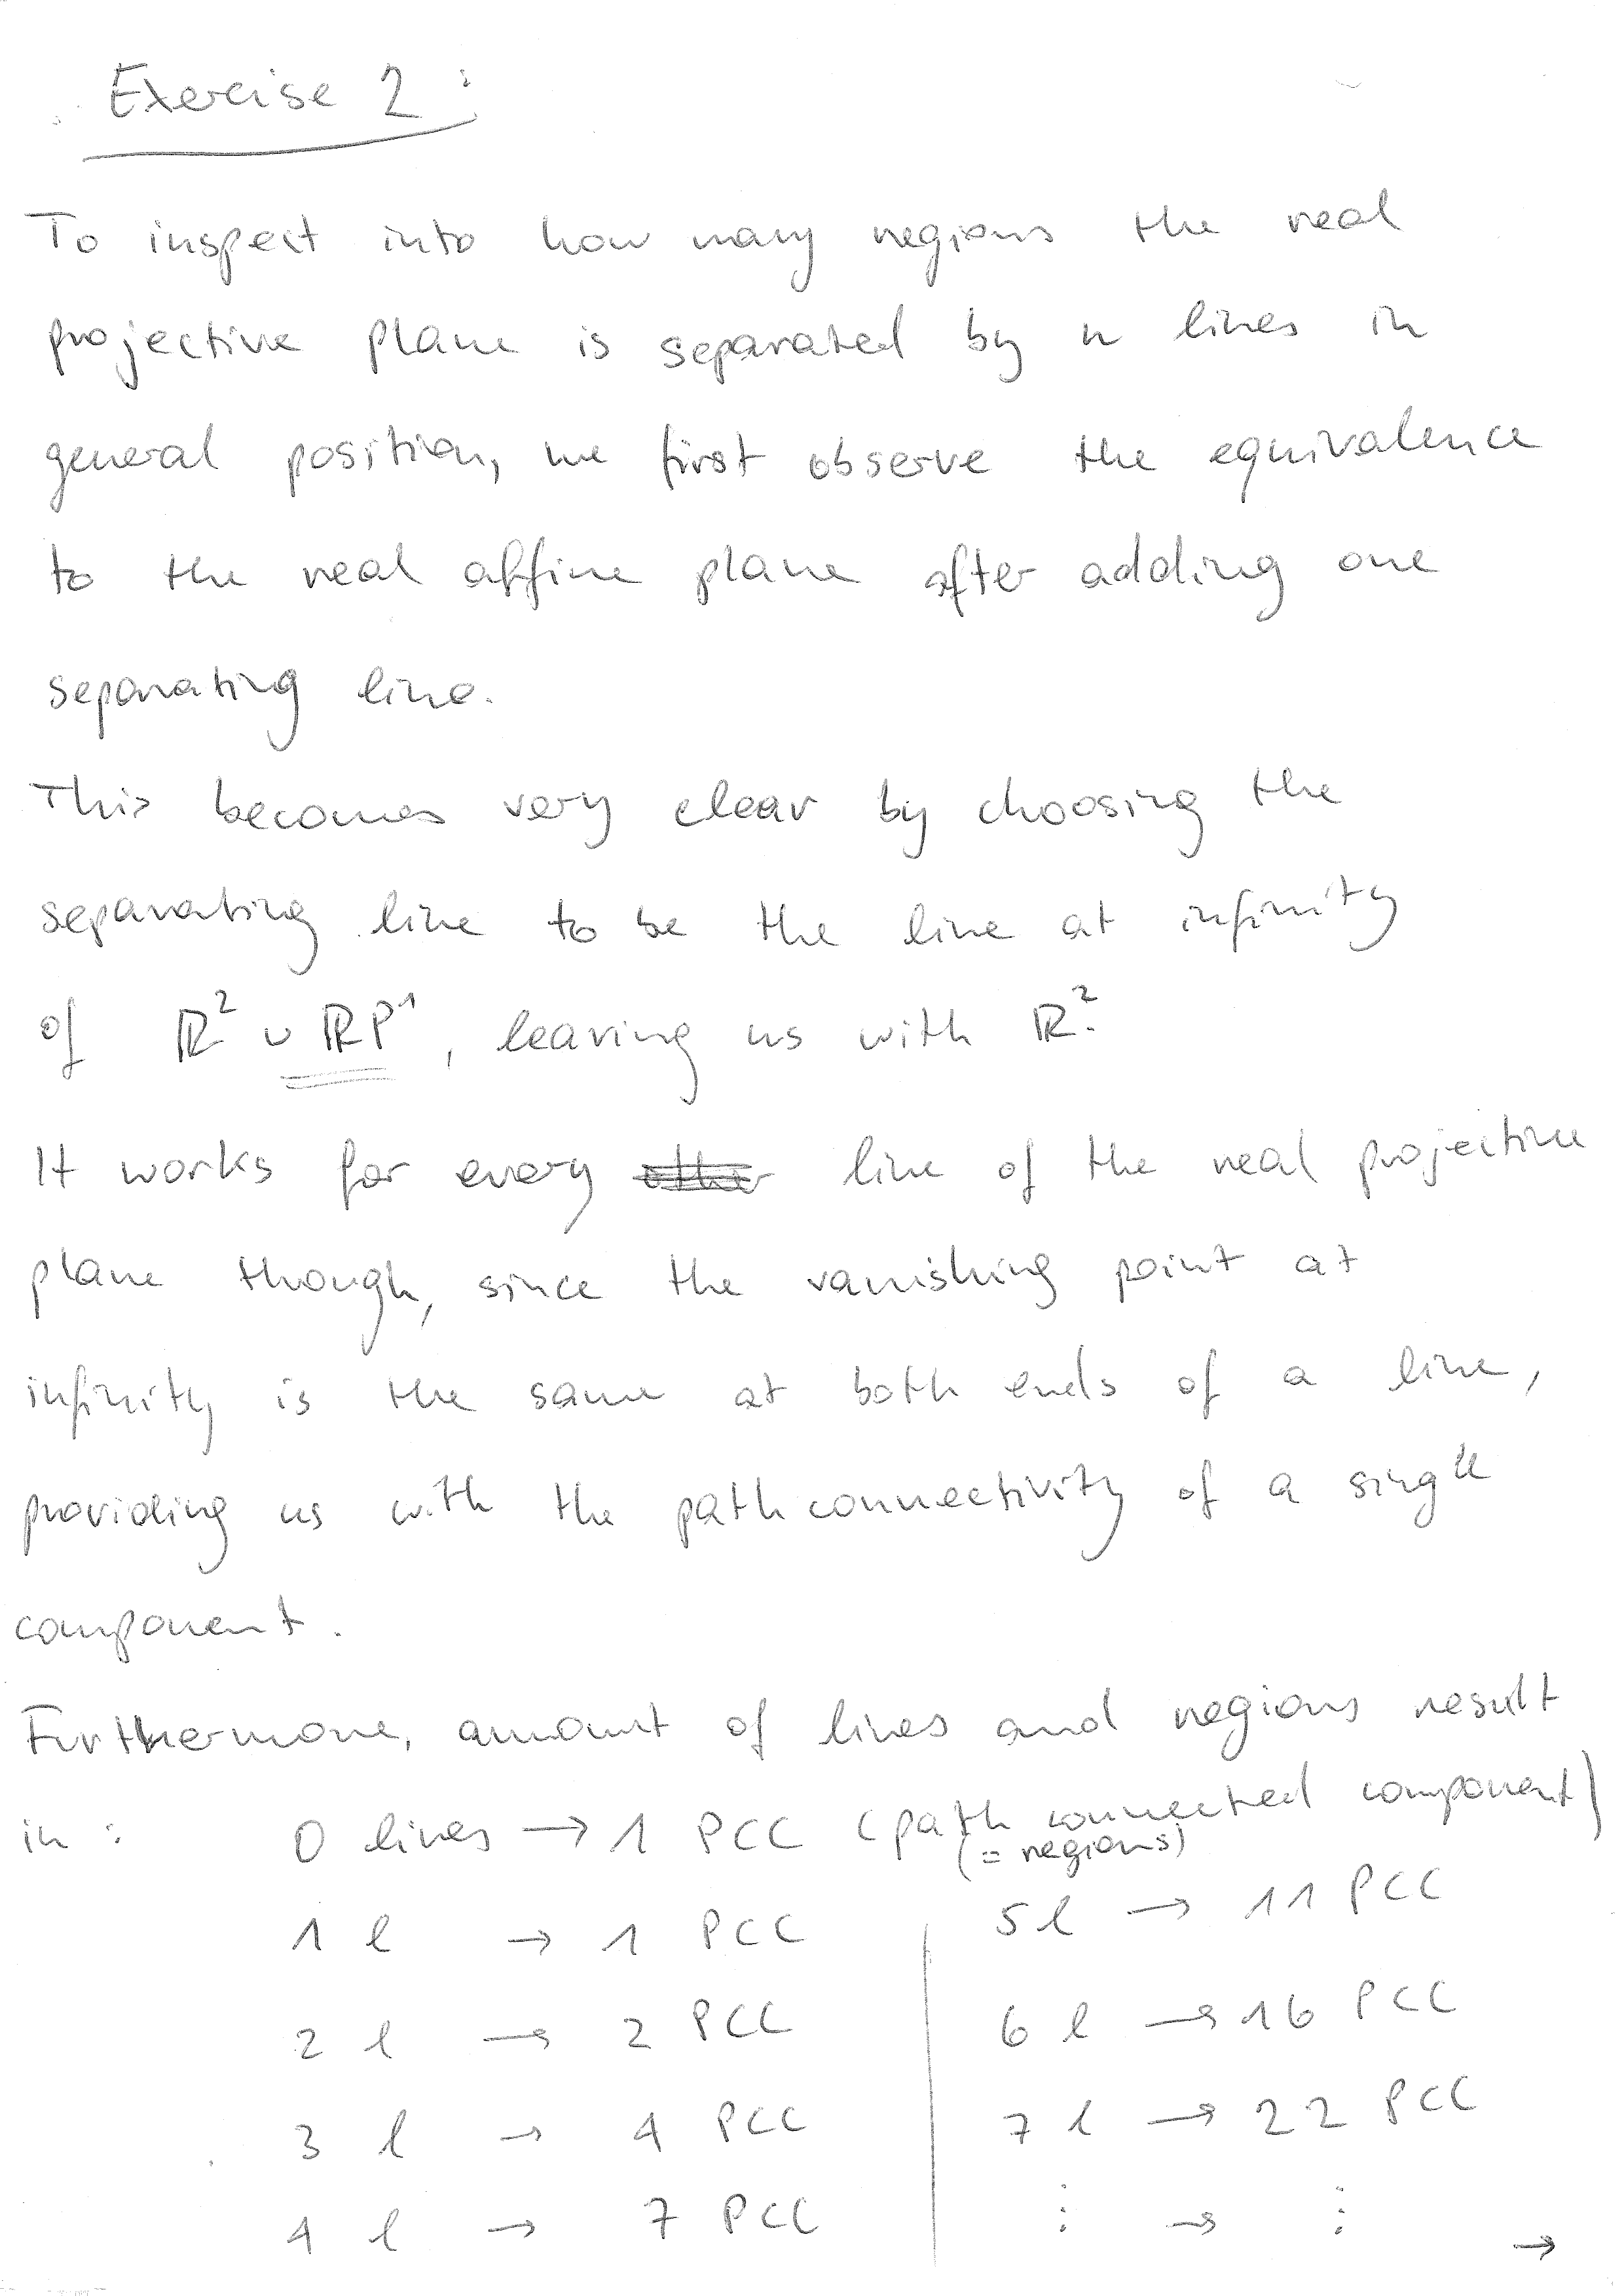 Exercise 2 :
To inspect into how many regions the real
projective plane is separated by n lines in
general position, we first observe the equivalence
to the real affine plane after adding one
separating line.
This becomes very clear by choosing the
separating line to be the line at infinity
of ℝ² ∪ ℝP¹, leaving us with ℝ².
It works for every line of the real projective
plane though, since the vanishing point at
infinity is the same at both ends of a line,
providing us with the pathconnectivity of a single
component.
Furthermore, amount of lines and regions result
in : 0 lines → 1 PCC (path connected component)
(= regions)
1 l → 1 PCC
2 l → 2 PCC
3 l → 4 PCC
4 l → 7 PCC
5 l → 11 PCC
6 l → 16 PCC
7 l → 22 PCC
⋮ → ⋮
→